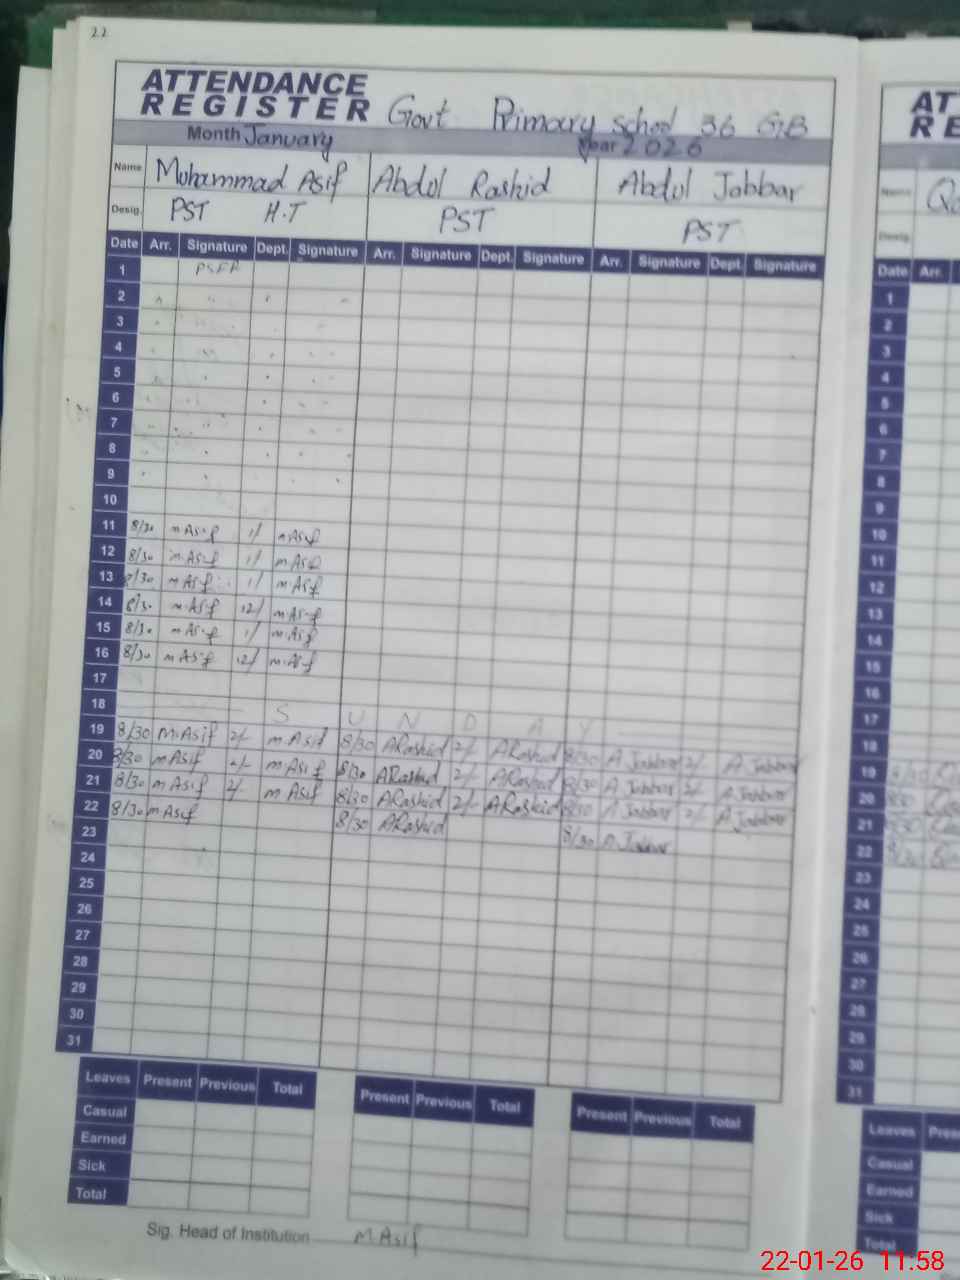 22
ATTENDANCE
REGISTER Govt Primary School 36 GB
Month January Year 2026
Name Mohammad Asif Abdul Rashid Abdul Jabbar
Desig. PST H.T PST PST
Date Arr. Signature Dept. Signature Arr. Signature Dept. Signature Arr. Signature Dept. Signature
1
2
3
4
5
6
7
8
9
10
11 8/30 m Asif 1/ m Asif
12 8/30 m Asif 1/ m Asif
13 8/30 m Asif 1/ m Asif
14 8/30 m Asif 12/ m Asif
15 8/30 m Asif 1/ m Asif
16 8/30 m Asif 12/ m Asif
17
18 S U N D A Y
19 8/30 M.Asif 2/- m.Asif 8/30 ARashid 2/- ARashid 8/30 A Jabbar 2/- A Jabbar
20 8/30 m Asif 2/- m.Asif 8/30 ARashid 2/- ARashid 8/30 A Jabbar 2/- A Jabbar
21 8/30 m Asif 2/- m Asif 8/30 ARashid 2/- ARashid 8/30 A Jabbar 2/- A Jabbar
22 8/30 m Asif 8/30 ARashid 8/30 A Jabbar
23
24
25
26
27
28
29
30
31
Leaves Present Previous Total Present Previous Total Present Previous Total
Casual
Earned
Sick
Total
Sig. Head of Institution M.Asif
AT
RE
Name
Desig.
Date Arr.
1
2
3
4
5
6
7
8
9
10
11
12
13
14
15
16
17
18
19
20
21
22
23
24
25
26
27
28
29
30
31
Leaves
Casual
Earned
Sick
Total
22-01-26 11:58